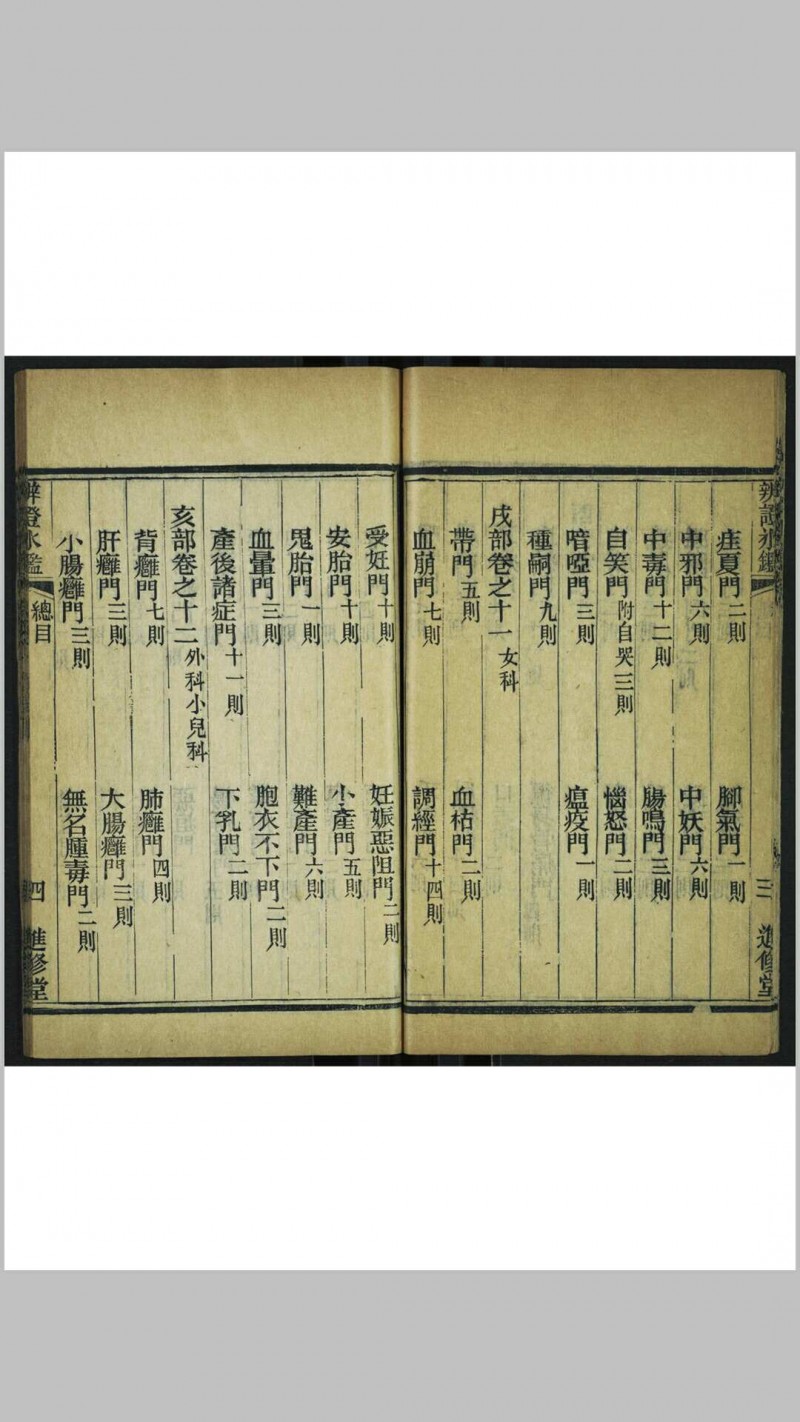 辨證冰鑑 三 進修堂
疰夏門二則 腳氣門一則
中邪門六則 中妖門六則
中毒門十二則 腸鳴門三則
自笑門附自哭三則 惱怒門二則
喑啞門三則 瘟疫門一則
種嗣門九則
戌部卷之十一女科
帶門五則 血枯門二則
血崩門七則 調經門十四則
受妊門十則 妊娠惡阻門二則
安胎門十則 小產門五則
鬼胎門一則 難產門六則
血暈門三則 胞衣不下門二則
產後諸症門十一則 下乳門二則
亥部卷之十二外科小兒科
背癰門七則 肺癰門四則
肝癰門三則 大腸癰門三則
小腸癰門三則 無名腫毒門二則
辨證冰鑑 總目 四 進修堂